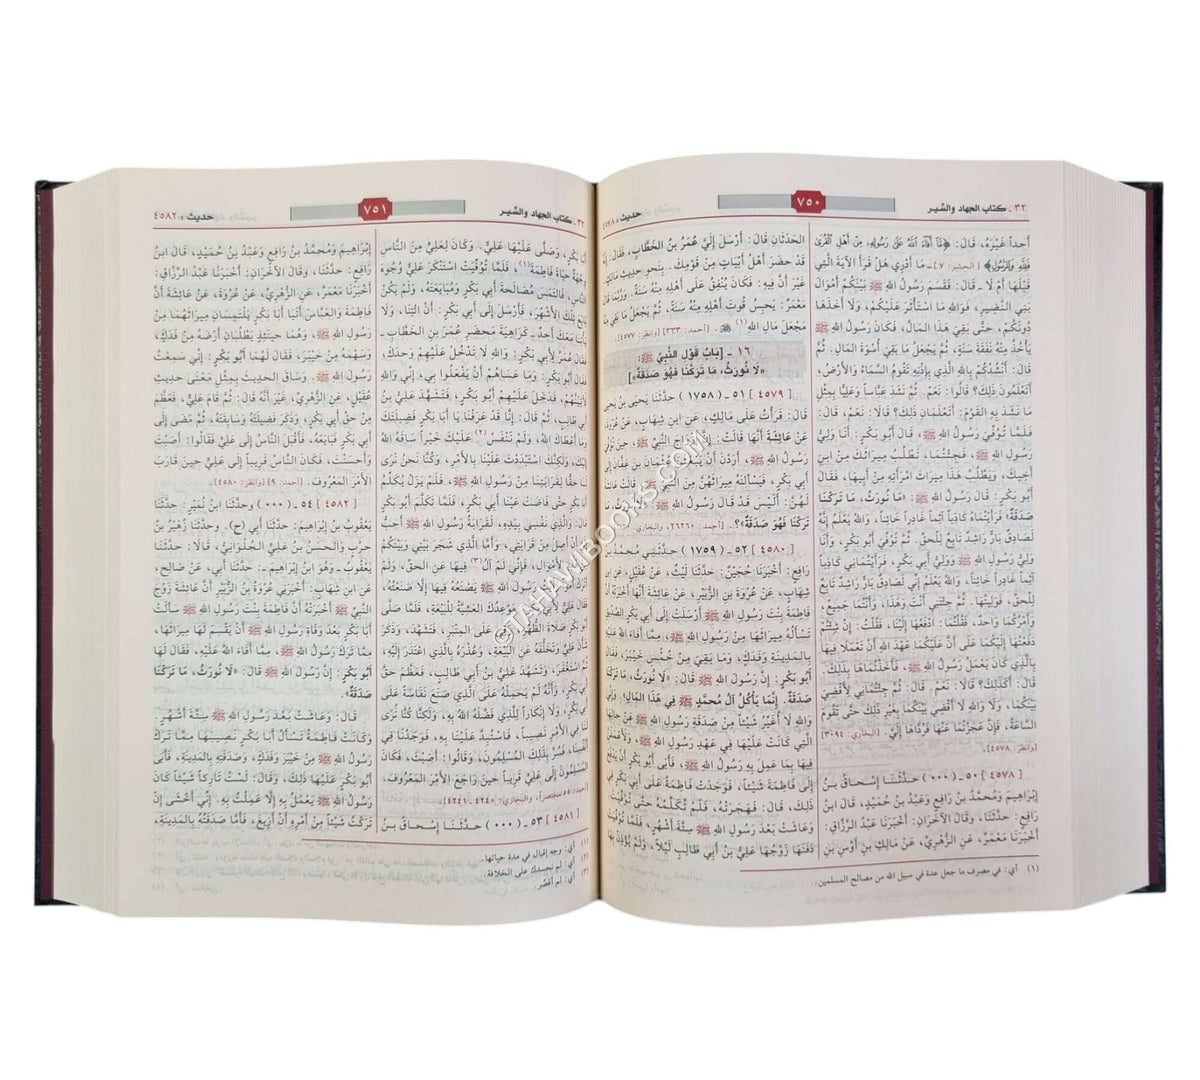 ٣٢ ـ كتاب الجهاد والسِّير
٧٥٠
حديث: ٤٥٧٨
أَحداً غَيْرَهُ، قَالَ: ﴿مَّا أَفَاءَ اللَّهُ عَلَىٰ رَسُولِهِ مِنْ أَهْلِ الْقُرَىٰ
فَلِلَّهِ وَلِلرَّسُولِ﴾ [الحشر: ٧] ـ مَا أَدْرِي هَلْ قَرَأَ الآيَةَ الَّتِي
قَبْلَهَا أَمْ لَا ـ قَالَ: فَقَسَمَ رَسُولُ اللهِ ﷺ بَيْنَكُمْ أَمْوَالَ
بَنِي النَّضِيرِ، فَوَاللهِ مَا اسْتَأْثَرَ عَلَيْكُمْ، وَلَا أَخَذَهَا
دُونَكُمْ، حَتَّى بَقِيَ هَذَا المَالُ، فَكَانَ رَسُولُ اللهِ ﷺ
يَأْخُذُ مِنْهُ نَفَقَةَ سَنَةٍ، ثُمَّ يَجْعَلُ مَا بَقِيَ أُسْوَةَ المَالِ. ثُمَّ
قَالَ: أَنْشُدُكُمْ بِاللهِ الَّذِي بِإِذْنِهِ تَقُومُ السَّمَاءُ وَالأَرْضُ،
أَتَعْلَمُونَ ذَلِكَ؟ قَالُوا: نَعَمْ. ثُمَّ نَشَدَ عَبَّاساً وَعَلِيًّا بِمِثْلِ
مَا نَشَدَ بِهِ القَوْمَ: أَتَعْلَمَانِ ذَلِكَ؟ قَالَا: نَعَمْ، قَالَ:
فَلَمَّا تُوُفِّيَ رَسُولُ اللهِ ﷺ، قَالَ أَبُو بَكْرٍ: أَنَا وَلِيُّ
رَسُولِ اللهِ ﷺ، فَجِئْتُمَا، تَطْلُبُ مِيرَاثَكَ مِنِ ابْنِ
أَخِيكَ، وَيَطْلُبُ هَذَا مِيرَاثَ امْرَأَتِهِ مِنْ أَبِيهَا، فَقَالَ
أَبُو بَكْرٍ: قَالَ رَسُولُ اللهِ ﷺ: «مَا نُورَثُ، مَا تَرَكْنَا
صَدَقَةٌ» فَرَأَيْتُمَاهُ كَاذِباً آثِماً غَادِراً خَائِناً، وَاللهُ يَعْلَمُ إِنَّهُ
لَصَادِقٌ بَارٌّ رَاشِدٌ تَابِعٌ لِلْحَقِّ. ثُمَّ تُوُفِّيَ أَبُو بَكْرٍ، وَأَنَا
وَلِيُّ رَسُولِ اللهِ ﷺ وَوَلِيُّ أَبِي بَكْرٍ، فَرَأَيْتُمَانِي كَاذِباً
آثِماً غَادِراً خَائِناً، وَاللهُ يَعْلَمُ إِنِّي لَصَادِقٌ بَارٌّ رَاشِدٌ تَابِعٌ
لِلْحَقِّ، فَوَلِيتُهَا. ثُمَّ جِئْتَنِي أَنْتَ وَهَذَا، وَأَنْتُمَا جَمِيعٌ،
وَأَمْرُكُمَا وَاحِدٌ، فَقُلْتُمَا: ادْفَعْهَا إِلَيْنَا، فَقُلْتُ: إِنْ شِئْتُمْ
دَفَعْتُهَا إِلَيْكُمَا عَلَى أَنَّ عَلَيْكُمَا عَهْدَ اللهِ أَنْ تَعْمَلَا فِيهَا
بِالَّذِي كَانَ يَعْمَلُ رَسُولُ اللهِ ﷺ، فَأَخَذْتُمَاهَا بِذَلِكَ.
قَالَ: أَكَذَلِكَ؟ قَالَا: نَعَمْ. قَالَ: ثُمَّ جِئْتُمَانِي لِأَقْضِيَ
بَيْنَكُمَا، وَلَا وَاللهِ لَا أَقْضِي بَيْنَكُمَا بِغَيْرِ ذَلِكَ حَتَّى تَقُومَ
السَّاعَةُ، فَإِنْ عَجَزْتُمَا عَنْهَا فَرُدَّاهَا إِلَيَّ. [البخاري: ٣٠٩٤]
[وانظر: ٤٥٧٨].
[٤٥٧٨] ٥٠ ـ (٠٠٠) حَدَّثَنَا إِسْحَاقُ بْنُ
إِبْرَاهِيمَ وَمُحَمَّدُ بْنُ رَافِعٍ وَعَبْدُ بْنُ حُمَيْدٍ، قَالَ ابْنُ
رَافِعٍ: حَدَّثَنَا، وَقَالَ الآخَرَانِ: أَخْبَرَنَا عَبْدُ الرَّزَّاقِ:
أَخْبَرَنَا مَعْمَرٌ، عَنِ الزُّهْرِيِّ، عَنْ مَالِكِ بْنِ أَوْسِ بْنِ
الحَدَثَانِ قَالَ: أَرْسَلَ إِلَيَّ عُمَرُ بْنُ الخَطَّابِ، فَقَالَ: إِنَّهُ
قَدْ حَضَرَ أَهْلُ أَبْيَاتٍ مِنْ قَوْمِكَ. بِنَحْوِ حَدِيثِ مَالِكٍ
غَيْرَ أَنَّ فِيهِ: فَكَانَ يُنْفِقُ عَلَى أَهْلِهِ مِنْهُ سَنَةً، وَرُبَّمَا قَالَ
مَعْمَرٌ: يَحْبِسُ قُوتَ أَهْلِهِ مِنْهُ سَنَةً، ثُمَّ يَجْعَلُ مَا بَقِيَ مِنْهُ
مَجْعَلَ مَالِ اللهِ (١). [أحمد: ٣٣٣] [وانظر: ٤٥٧٧].
١٦ ـ [بَابُ قَوْلِ النَّبِيِّ ﷺ:
«لَا نُورَثُ، مَا تَرَكْنَا فَهُوَ صَدَقَةٌ»]
[٤٥٧٩] ٥١ ـ (١٧٥٨) حَدَّثَنَا يَحْيَى بْنُ يَحْيَى
قَالَ: قَرَأْتُ عَلَى مَالِكٍ، عَنِ ابْنِ شِهَابٍ، عَنْ عُرْوَةَ
عَنْ عَائِشَةَ أَنَّهَا قَالَتْ: إِنَّ أَزْوَاجَ النَّبِيِّ ﷺ، حِينَ تُوُفِّيَ
رَسُولُ اللهِ ﷺ، أَرَدْنَ أَنْ يَبْعَثْنَ عُثْمَانَ بْنَ عَفَّانَ إِلَى
أَبِي بَكْرٍ، فَيَسْأَلْنَهُ مِيرَاثَهُنَّ مِنَ النَّبِيِّ ﷺ، قَالَتْ عَائِشَةُ
لَهُنَّ: أَلَيْسَ قَدْ قَالَ رَسُولُ اللهِ ﷺ: «لَا نُورَثُ، مَا
تَرَكْنَا فَهُوَ صَدَقَةٌ»؟. [أحمد: ٢٦٢٦٠، والبخاري:
[٤٥٨٠] ٥٢ ـ (١٧٥٩) حَدَّثَنِي مُحَمَّدُ بْنُ
رَافِعٍ: أَخْبَرَنَا حُجَيْنٌ: حَدَّثَنَا لَيْثٌ، عَنْ عُقَيْلٍ، عَنِ ابْنِ
شِهَابٍ، عَنْ عُرْوَةَ بْنِ الزُّبَيْرِ، عَنْ عَائِشَةَ أَنَّهَا أَخْبَرَتْهُ أَنَّ
فَاطِمَةَ بِنْتَ رَسُولِ اللهِ ﷺ أَرْسَلَتْ إِلَى أَبِي بَكْرٍ الصِّدِّيقِ
تَسْأَلُهُ مِيرَاثَهَا مِنْ رَسُولِ اللهِ ﷺ، مِمَّا أَفَاءَ اللهُ عَلَيْهِ
بِالمَدِينَةِ وَفَدَكٍ، وَمَا بَقِيَ مِنْ خُمُسِ خَيْبَرَ، فَقَالَ
أَبُو بَكْرٍ: إِنَّ رَسُولَ اللهِ ﷺ قَالَ: «لَا نُورَثُ، مَا تَرَكْنَا
صَدَقَةٌ. إِنَّمَا يَأْكُلُ آلُ مُحَمَّدٍ ﷺ فِي هَذَا المَالِ» وَإِنِّي
وَاللهِ لَا أُغَيِّرُ شَيْئاً مِنْ صَدَقَةِ رَسُولِ اللهِ ﷺ عَنْ حَالِهَا
الَّتِي كَانَتْ عَلَيْهَا فِي عَهْدِ رَسُولِ اللهِ ﷺ، وَلَأَعْمَلَنَّ
فِيهَا بِمَا عَمِلَ بِهِ رَسُولُ اللهِ ﷺ، فَأَبَى أَبُو بَكْرٍ أَنْ يَدْفَعَ
إِلَى فَاطِمَةَ شَيْئاً، فَوَجَدَتْ فَاطِمَةُ عَلَى أَبِي بَكْرٍ فِي
ذَلِكَ، قَالَ: فَهَجَرَتْهُ، فَلَمْ تُكَلِّمْهُ حَتَّى تُوُفِّيَتْ،
وَعَاشَتْ بَعْدَ رَسُولِ اللهِ ﷺ سِتَّةَ أَشْهُرٍ، فَلَمَّا تُوُفِّيَتْ
دَفَنَهَا زَوْجُهَا عَلِيُّ بْنُ أَبِي طَالِبٍ لَيْلاً، وَلَمْ يُؤْذِنْ بِهَا
(١) أي: في مصرف ما جعل عدة في سبيل الله من مصالح المسلمين.
٣٢ ـ كتاب الجهاد والسِّير
٧٥١
حديث: ٤٥٨٢
أَبَا بَكْرٍ، وَصَلَّى عَلَيْهَا عَلِيٌّ، وَكَانَ لِعَلِيٍّ مِنَ النَّاسِ
وِجْهَةٌ حَيَاةَ فَاطِمَةَ(١)، فَلَمَّا تُوُفِّيَتْ اسْتَنْكَرَ عَلِيٌّ وُجُوهَ
النَّاسِ، فَالتَمَسَ مُصَالَحَةَ أَبِي بَكْرٍ وَمُبَايَعَتَهُ، وَلَمْ يَكُنْ
بَايَعَ تِلْكَ الأَشْهُرَ، فَأَرْسَلَ إِلَى أَبِي بَكْرٍ: أَنْ ائْتِنَا، وَلَا
يَأْتِنَا مَعَكَ أَحَدٌ ـ كَرَاهِيَةَ مَحْضَرِ عُمَرَ بْنِ الخَطَّابِ ـ
فَقَالَ عُمَرُ لِأَبِي بَكْرٍ: وَاللهِ لَا تَدْخُلْ عَلَيْهِمْ وَحْدَكَ،
فَقَالَ أَبُو بَكْرٍ: وَمَا عَسَاهُمْ أَنْ يَفْعَلُوا بِي، إِنِّي وَاللهِ
لَآتِيَنَّهُمْ، فَدَخَلَ عَلَيْهِمْ أَبُو بَكْرٍ، فَتَشَهَّدَ عَلِيُّ بْنُ
أَبِي طَالِبٍ، ثُمَّ قَالَ: إِنَّا قَدْ عَرَفْنَا يَا أَبَا بَكْرٍ فَضِيلَتَكَ
وَمَا أَعْطَاكَ اللهُ، وَلَمْ نَنْفَسْ(٢) عَلَيْكَ خَيْراً سَاقَهُ اللهُ
إِلَيْكَ، وَلَكِنَّكَ اسْتَبْدَدْتَ عَلَيْنَا بِالأَمْرِ، وَكُنَّا نَحْنُ نَرَى
لَنَا حَقًّا لِقَرَابَتِنَا مِنْ رَسُولِ اللهِ ﷺ، فَلَمْ يَزَلْ يُكَلِّمُ
أَبَا بَكْرٍ حَتَّى فَاضَتْ عَيْنَا أَبِي بَكْرٍ، فَلَمَّا تَكَلَّمَ أَبُو بَكْرٍ
قَالَ: وَالَّذِي نَفْسِي بِيَدِهِ، لَقَرَابَةُ رَسُولِ اللهِ ﷺ أَحَبُّ
إِلَيَّ أَنْ أَصِلَ مِنْ قَرَابَتِي، وَأَمَّا الَّذِي شَجَرَ بَيْنِي وَبَيْنَكُمْ
مِنْ هَذِهِ الأَمْوَالِ، فَإِنِّي لَمْ آلُ(٣) فِيهَا عَنِ الحَقِّ، وَلَمْ
أَتْرُكْ أَمْراً رَأَيْتُ رَسُولَ اللهِ ﷺ يَصْنَعُهُ فِيهَا إِلَّا صَنَعْتُهُ،
فَقَالَ عَلِيٌّ لِأَبِي بَكْرٍ: مَوْعِدُكَ العَشِيَّةُ لِلْبَيْعَةِ، فَلَمَّا صَلَّى
أَبُو بَكْرٍ صَلَاةَ الظُّهْرِ، رَقِيَ عَلَى المِنْبَرِ، فَتَشَهَّدَ، وَذَكَرَ
شَأْنَ عَلِيٍّ وَتَخَلُّفَهُ عَنِ البَيْعَةِ، وَعُذْرَهُ بِالَّذِي اعْتَذَرَ إِلَيْهِ،
ثُمَّ اسْتَغْفَرَ، وَتَشَهَّدَ عَلِيُّ بْنُ أَبِي طَالِبٍ، فَعَظَّمَ حَقَّ
أَبِي بَكْرٍ، وَأَنَّهُ لَمْ يَحْمِلْهُ عَلَى الَّذِي صَنَعَ نَفَاسَةً عَلَى
أَبِي بَكْرٍ، وَلَا إِنْكَاراً لِلَّذِي فَضَّلَهُ اللهُ بِهِ، وَلَكِنَّا كُنَّا نَرَى
لَنَا فِي الأَمْرِ نَصِيباً، فَاسْتُبِدَّ عَلَيْنَا بِهِ، فَوَجَدْنَا فِي
أَنْفُسِنَا، فَسُرَّ بِذَلِكَ المُسْلِمُونَ، وَقَالُوا: أَصَبْتَ، فَكَانَ
المُسْلِمُونَ إِلَى عَلِيٍّ قَرِيباً حِينَ رَاجَعَ الأَمْرَ المَعْرُوفَ.
[أحمد: ٥٥ مختصراً، والبخاري: ٤٢٤٠ ـ ٤٢٤١].
[٤٥٨١] ٥٣ ـ (٠٠٠) حَدَّثَنَا إِسْحَاقُ بْنُ
إِبْرَاهِيمَ وَمُحَمَّدُ بْنُ رَافِعٍ وَعَبْدُ بْنُ حُمَيْدٍ، قَالَ ابْنُ
رَافِعٍ: حَدَّثَنَا، وَقَالَ الآخَرَانِ: أَخْبَرَنَا عَبْدُ الرَّزَّاقِ:
أَخْبَرَنَا مَعْمَرٌ، عَنِ الزُّهْرِيِّ، عَنْ عُرْوَةَ، عَنْ عَائِشَةَ أَنَّ
فَاطِمَةَ وَالعَبَّاسَ أَتَيَا أَبَا بَكْرٍ يَلْتَمِسَانِ مِيرَاثَهُمَا مِنْ
رَسُولِ اللهِ ﷺ، وَهُمَا حِينَئِذٍ يَطْلُبَانِ أَرْضَهُ مِنْ فَدَكٍ،
وَسَهْمَهُ مِنْ خَيْبَرَ، فَقَالَ لَهُمَا أَبُو بَكْرٍ: إِنِّي سَمِعْتُ
رَسُولَ اللهِ ﷺ. وَسَاقَ الحَدِيثَ بِمِثْلِ مَعْنَى حَدِيثِ
عُقَيْلٍ، عَنِ الزُّهْرِيِّ، غَيْرَ أَنَّهُ قَالَ: ثُمَّ قَامَ عَلِيٌّ، فَعَظَّمَ
مِنْ حَقِّ أَبِي بَكْرٍ، وَذَكَرَ فَضِيلَتَهُ وَسَابِقَتَهُ، ثُمَّ مَضَى إِلَى
أَبِي بَكْرٍ فَبَايَعَهُ، فَأَقْبَلَ النَّاسُ إِلَى عَلِيٍّ فَقَالُوا: أَصَبْتَ
وَأَحْسَنْتَ، فَكَانَ النَّاسُ قَرِيباً إِلَى عَلِيٍّ حِينَ قَارَبَ
الأَمْرَ المَعْرُوفَ. [أحمد: ٩] [وانظر: ٤٥٨٠].
[٤٥٨٢] ٥٤ ـ (٠٠٠) حَدَّثَنَا ابْنُ نُمَيْرٍ: حَدَّثَنَا
يَعْقُوبُ بْنُ إِبْرَاهِيمَ: حَدَّثَنَا أَبِي (ح). وحَدَّثَنَا زُهَيْرُ بْنُ
حَرْبٍ وَالحَسَنُ بْنُ عَلِيٍّ الحُلْوَانِيُّ، قَالَا: حَدَّثَنَا
يَعْقُوبُ ـ وَهُوَ ابْنُ إِبْرَاهِيمَ ـ: حَدَّثَنَا أَبِي، عَنْ صَالِحٍ،
عَنِ ابْنِ شِهَابٍ: أَخْبَرَنِي عُرْوَةُ بْنُ الزُّبَيْرِ أَنَّ عَائِشَةَ زَوْجَ
النَّبِيِّ ﷺ أَخْبَرَتْهُ أَنَّ فَاطِمَةَ بِنْتَ رَسُولِ اللهِ ﷺ سَأَلَتْ
أَبَا بَكْرٍ بَعْدَ وَفَاةِ رَسُولِ اللهِ ﷺ أَنْ يَقْسِمَ لَهَا مِيرَاثَهَا،
مِمَّا تَرَكَ رَسُولُ اللهِ ﷺ، مِمَّا أَفَاءَ اللهُ عَلَيْهِ، فَقَالَ لَهَا
أَبُو بَكْرٍ: إِنَّ رَسُولَ اللهِ ﷺ قَالَ: «لَا نُورَثُ، مَا تَرَكْنَا
صَدَقَةٌ».
قَالَ: وَعَاشَتْ بَعْدَ رَسُولِ اللهِ ﷺ سِتَّةَ أَشْهُرٍ.
وَكَانَتْ فَاطِمَةُ تَسْأَلُ أَبَا بَكْرٍ نَصِيبَهَا مِمَّا تَرَكَ
رَسُولُ اللهِ ﷺ مِنْ خَيْبَرَ وَفَدَكٍ، وَصَدَقَتِهِ بِالمَدِينَةِ، فَأَبَى
أَبُو بَكْرٍ عَلَيْهَا ذَلِكَ، وَقَالَ: لَسْتُ تَارِكاً شَيْئاً كَانَ
رَسُولُ اللهِ ﷺ يَعْمَلُ بِهِ إِلَّا عَمِلْتُ بِهِ. إِنِّي أَخْشَى إِنْ
تَرَكْتُ شَيْئاً مِنْ أَمْرِهِ أَنْ أَزِيغَ، فَأَمَّا صَدَقَتُهُ بِالمَدِينَةِ،
(١) أي: وجه إقبال في مدة حياتها.
(٢) أي: لم نحسدك على الخلافة.
(٣) أي: لم أقصِّر.
©TAHAMIBOOKS.COM